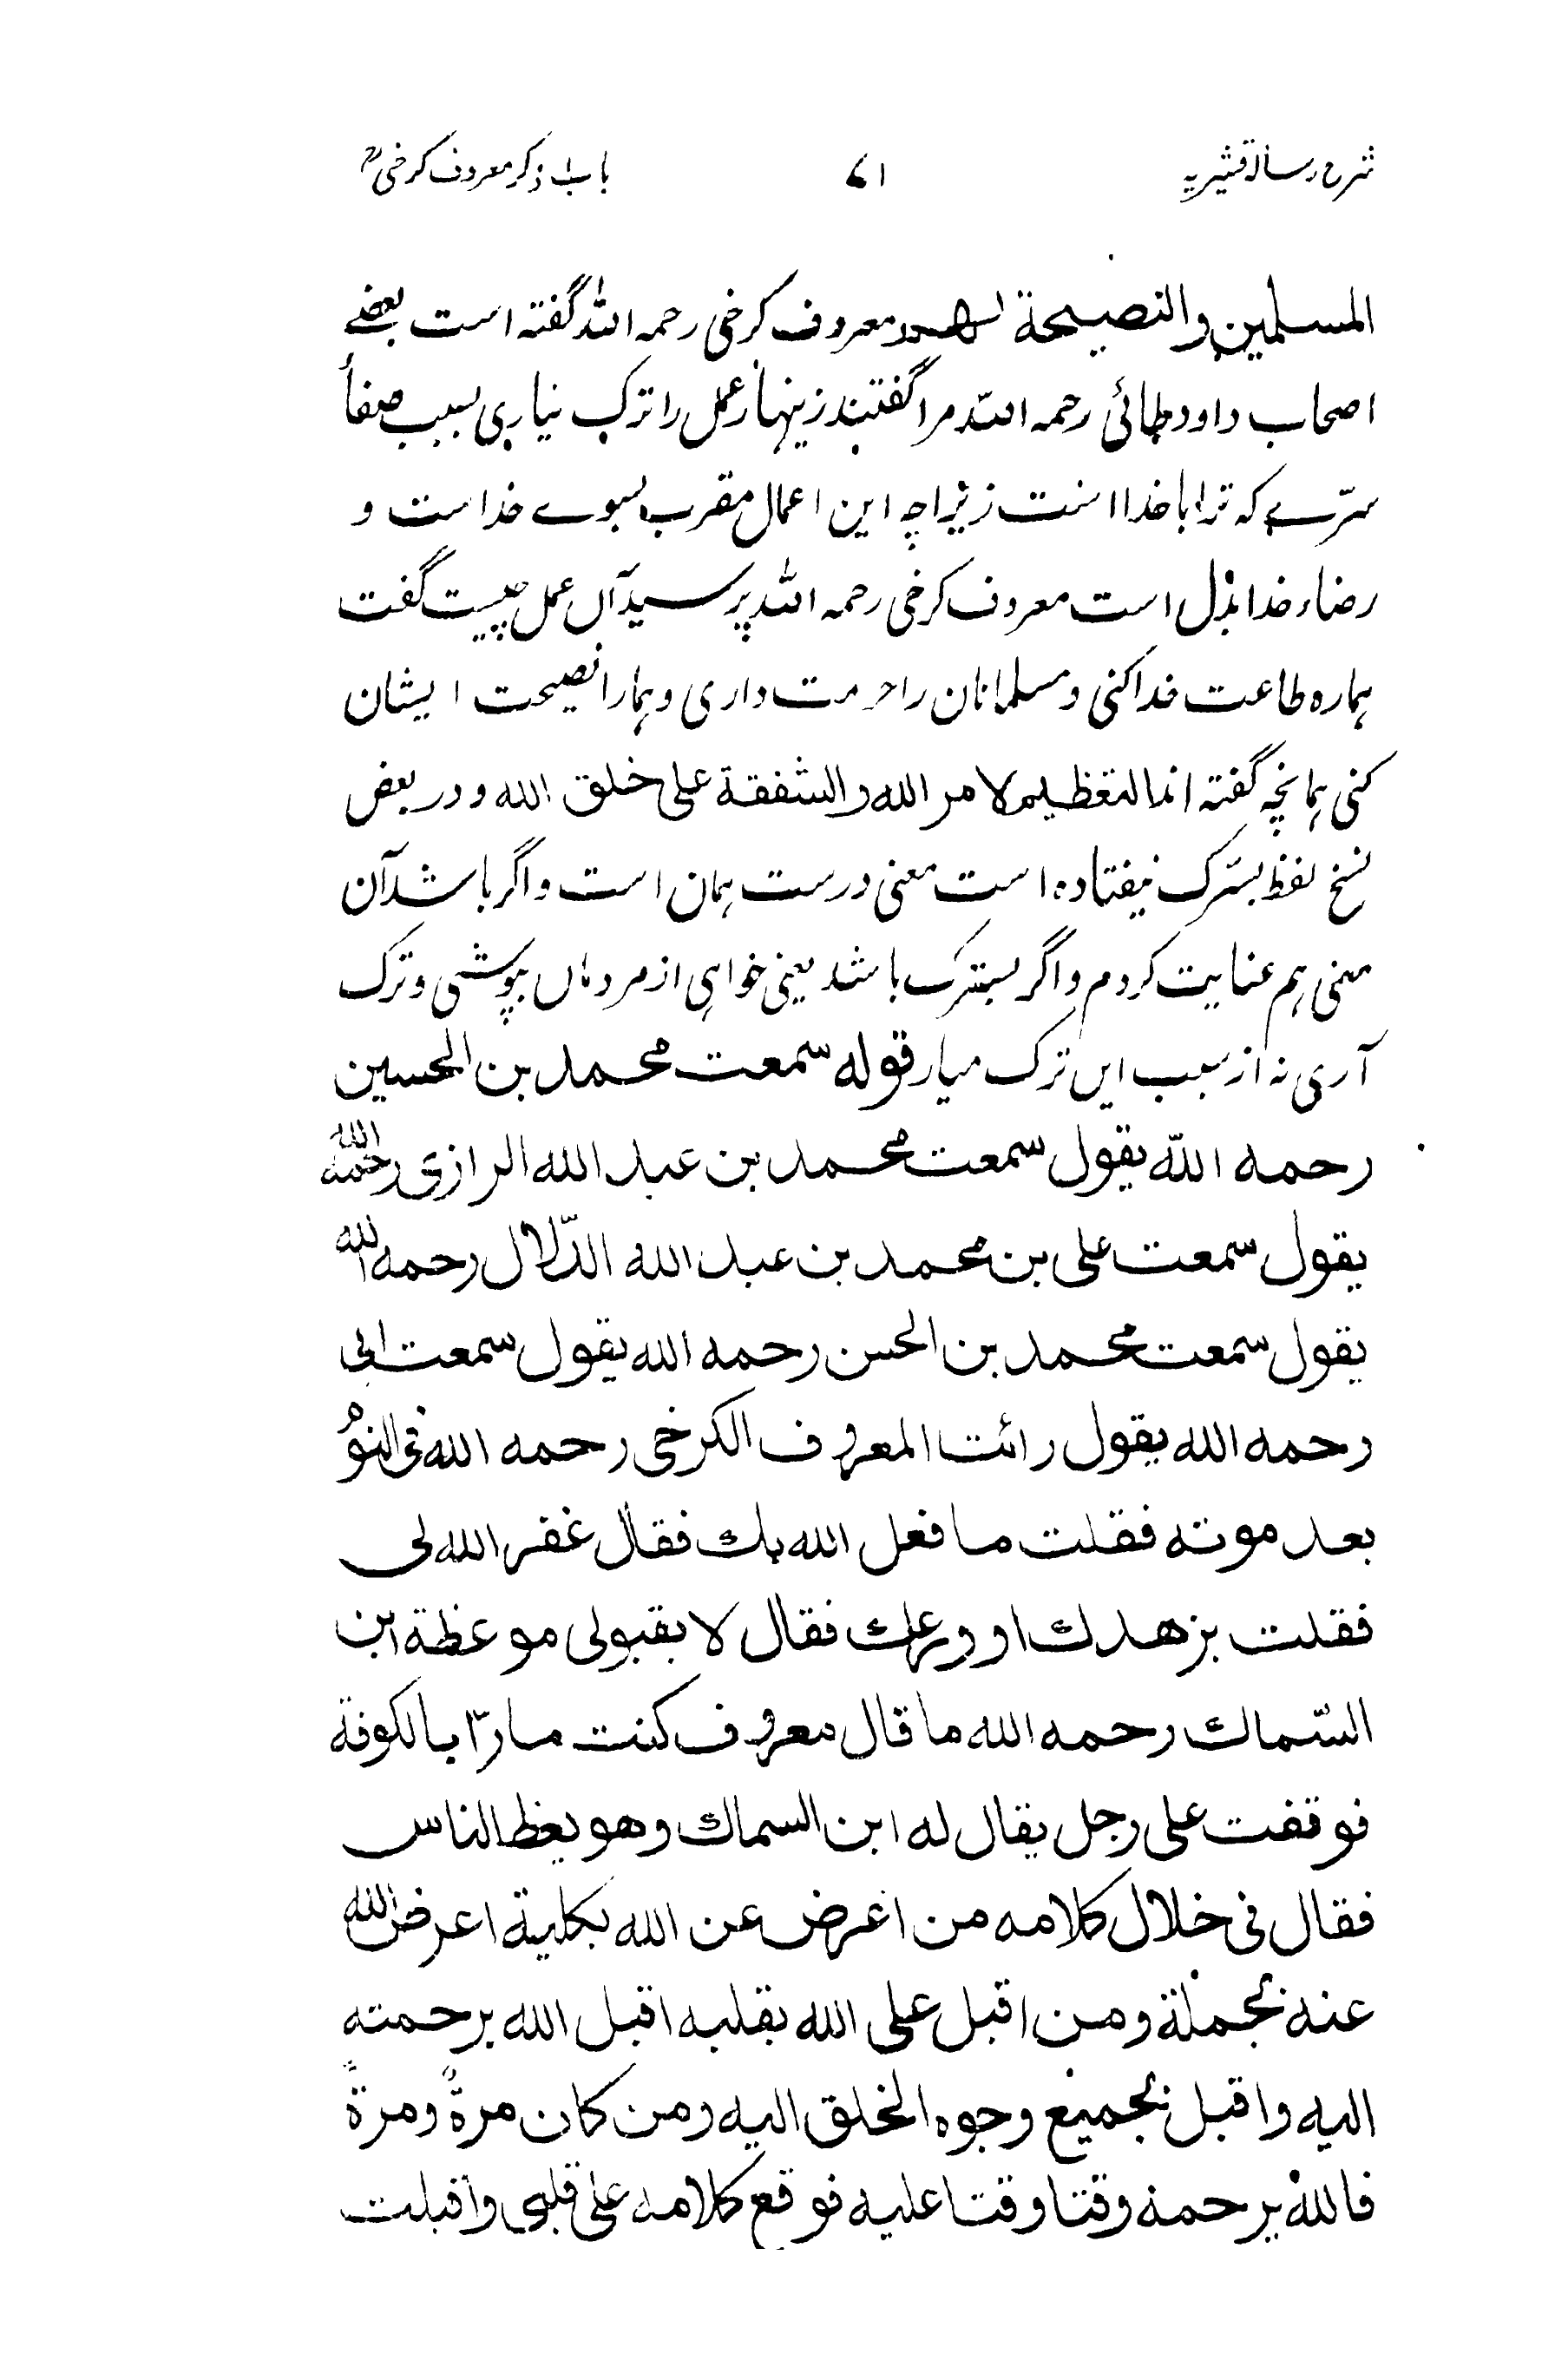 شرح رسالۂ قشیریہ ۷۱ باب ذکر معروف کرخیؒ
المسلمین والنصیحة لهم معروف کرخی رحمہ اللہ گفتہ است بعضے
اصحاب داود طائی رحمہ اللہ مرا گفتند زینہار عمل را ترک نیاری بسبب صفأ
سرّے کہ ترا با خدا است زیراچہ این اعمال مقرب بسوے خداست و
رضاء خدا بدل است معروف کرخی رحمہ اللہ پرسید آں عمل چیست گفت
ہمارہ طاعت خدا کنی و مسلمانان را حرمت داری و ہمارا نصیحت ایشان
کنی ہمانچہ گفتہ اند التعظیم لامر الله والشفقة علی خلق الله ودر بعض
نسخ لفظ بسّرک نیفتادہ است معنی درست ہمان است واگر باشد آن
معنی ہم عنایت کردم واگر بسترک باشد یعنی خواہی از مردماں بپوشی وترک
آری نہ از سبب ایں ترک میار قوله سمعت محمد بن الحسین
رحمه اللّه یقول سمعت محمد بن عبد الله الرازی رحمه الله
یقول سمعت علی بن محمد بن عبد الله الدّلال رحمه الله
یقول سمعت محمد بن الحسن رحمه الله یقول سمعت ابی
رحمه الله یقول رائت المعروف الکرخی رحمه الله فی النوْ
بعد موته فقلت ما فعل الله بك فقال غفر الله لی
فقلت بزهدك او ورعك فقال لا بقبولی موعظة ابن
السّماك رحمه الله ما قال معروف کنت مارّا بالکوفة
فوقفت علی رجل یقال له ابن السماك وهو یعظ الناس
فقال فی خلال کلامه من اعرض عن الله بکلیة اعرض الله
عنه بجملة ومن اقبل علی الله بقلبه اقبل الله برحمته
الیه واقبل بجمیع وجوه الخلق الیه ومن کان مرةً ومرةً
فالله یرحمه وقتا وقتا علیه فوقع کلامه علی قلبی واقبلت